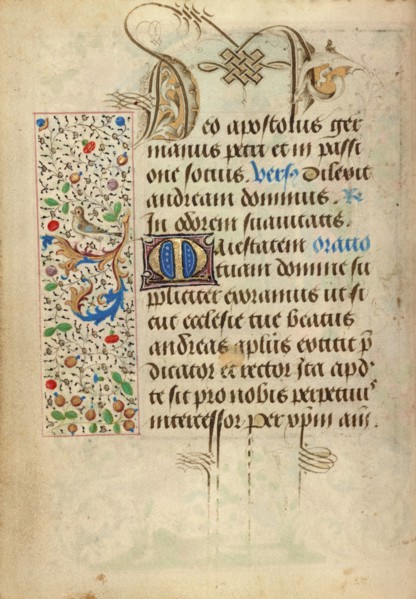 Deo apostolus ger
manus petri et in passi
one socius. Vers Dilexit
andream dominus. R
In odorem suavitatis.
Maiestatem oratio
tuam domine su
ppliciter exoramus ut si
cut ecclesie tue beatus
andreas aplus extitit p
dicator et rector ita apd
te sit pro nobis perpetuus
intercessor per xpm am.